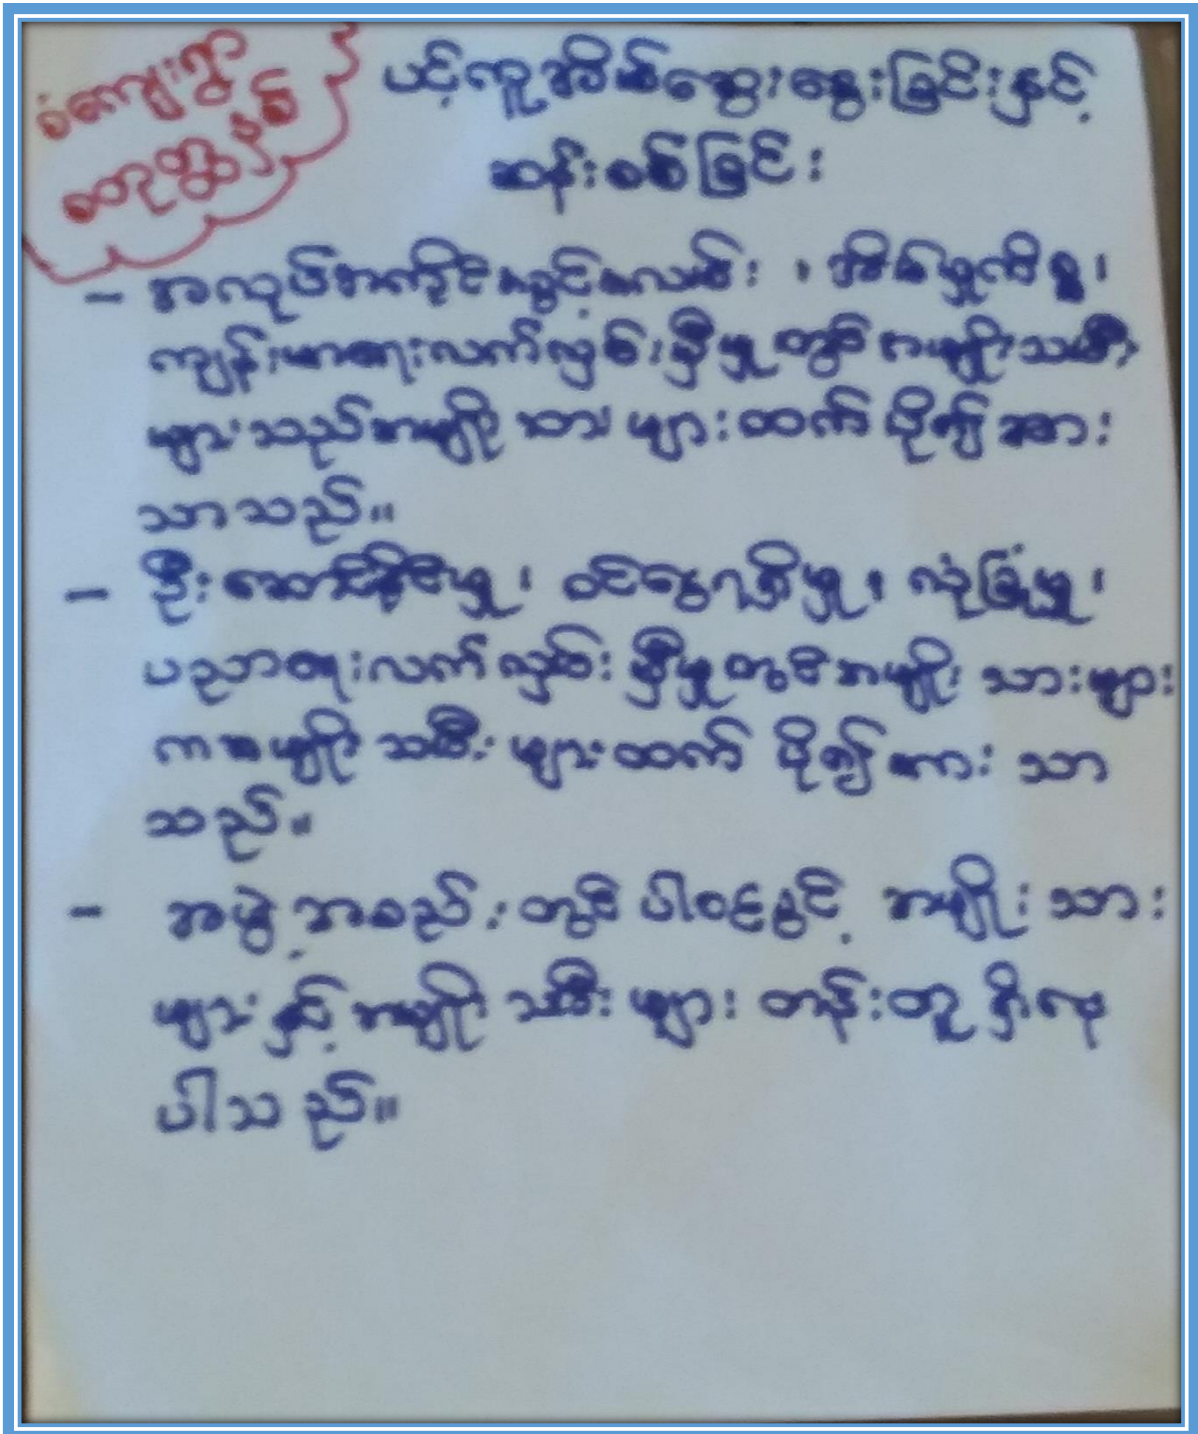 စံကျေးရွာ
ပင့်ကူအိမ်ဆွေးနွေးခြင်းနှင့်
ဆန်းစစ်ခြင်း
- အလုပ်အကိုင်အခွင့်အလမ်း ၊ အိမ်မှုကိစ္စ၊
ကျန်းမာရေးလက်လှမ်းမှီမှု တွင် အမျိုးသမီး
များသည်အမျိုး သား များထက် ပို၍အား
သာသည်။
- ဦးဆောင်နိုင်မှု၊ ဝင်ငွေရရှိမှု၊ လုံခြုံမှု၊
ပညာရေးလက်လှမ်း မှီမှုတွင်အမျိုး သားများ
ကအမျိုး သမီး များထက် ပို၍အား သာ
သည်။
- အဖွဲ့အစည်းတွင် ပါဝင်ခွင့် အမျိုး သား
များနှင့်အမျိုး သမီး များ တန်းတူ ရှိနေ
ပါသည်။